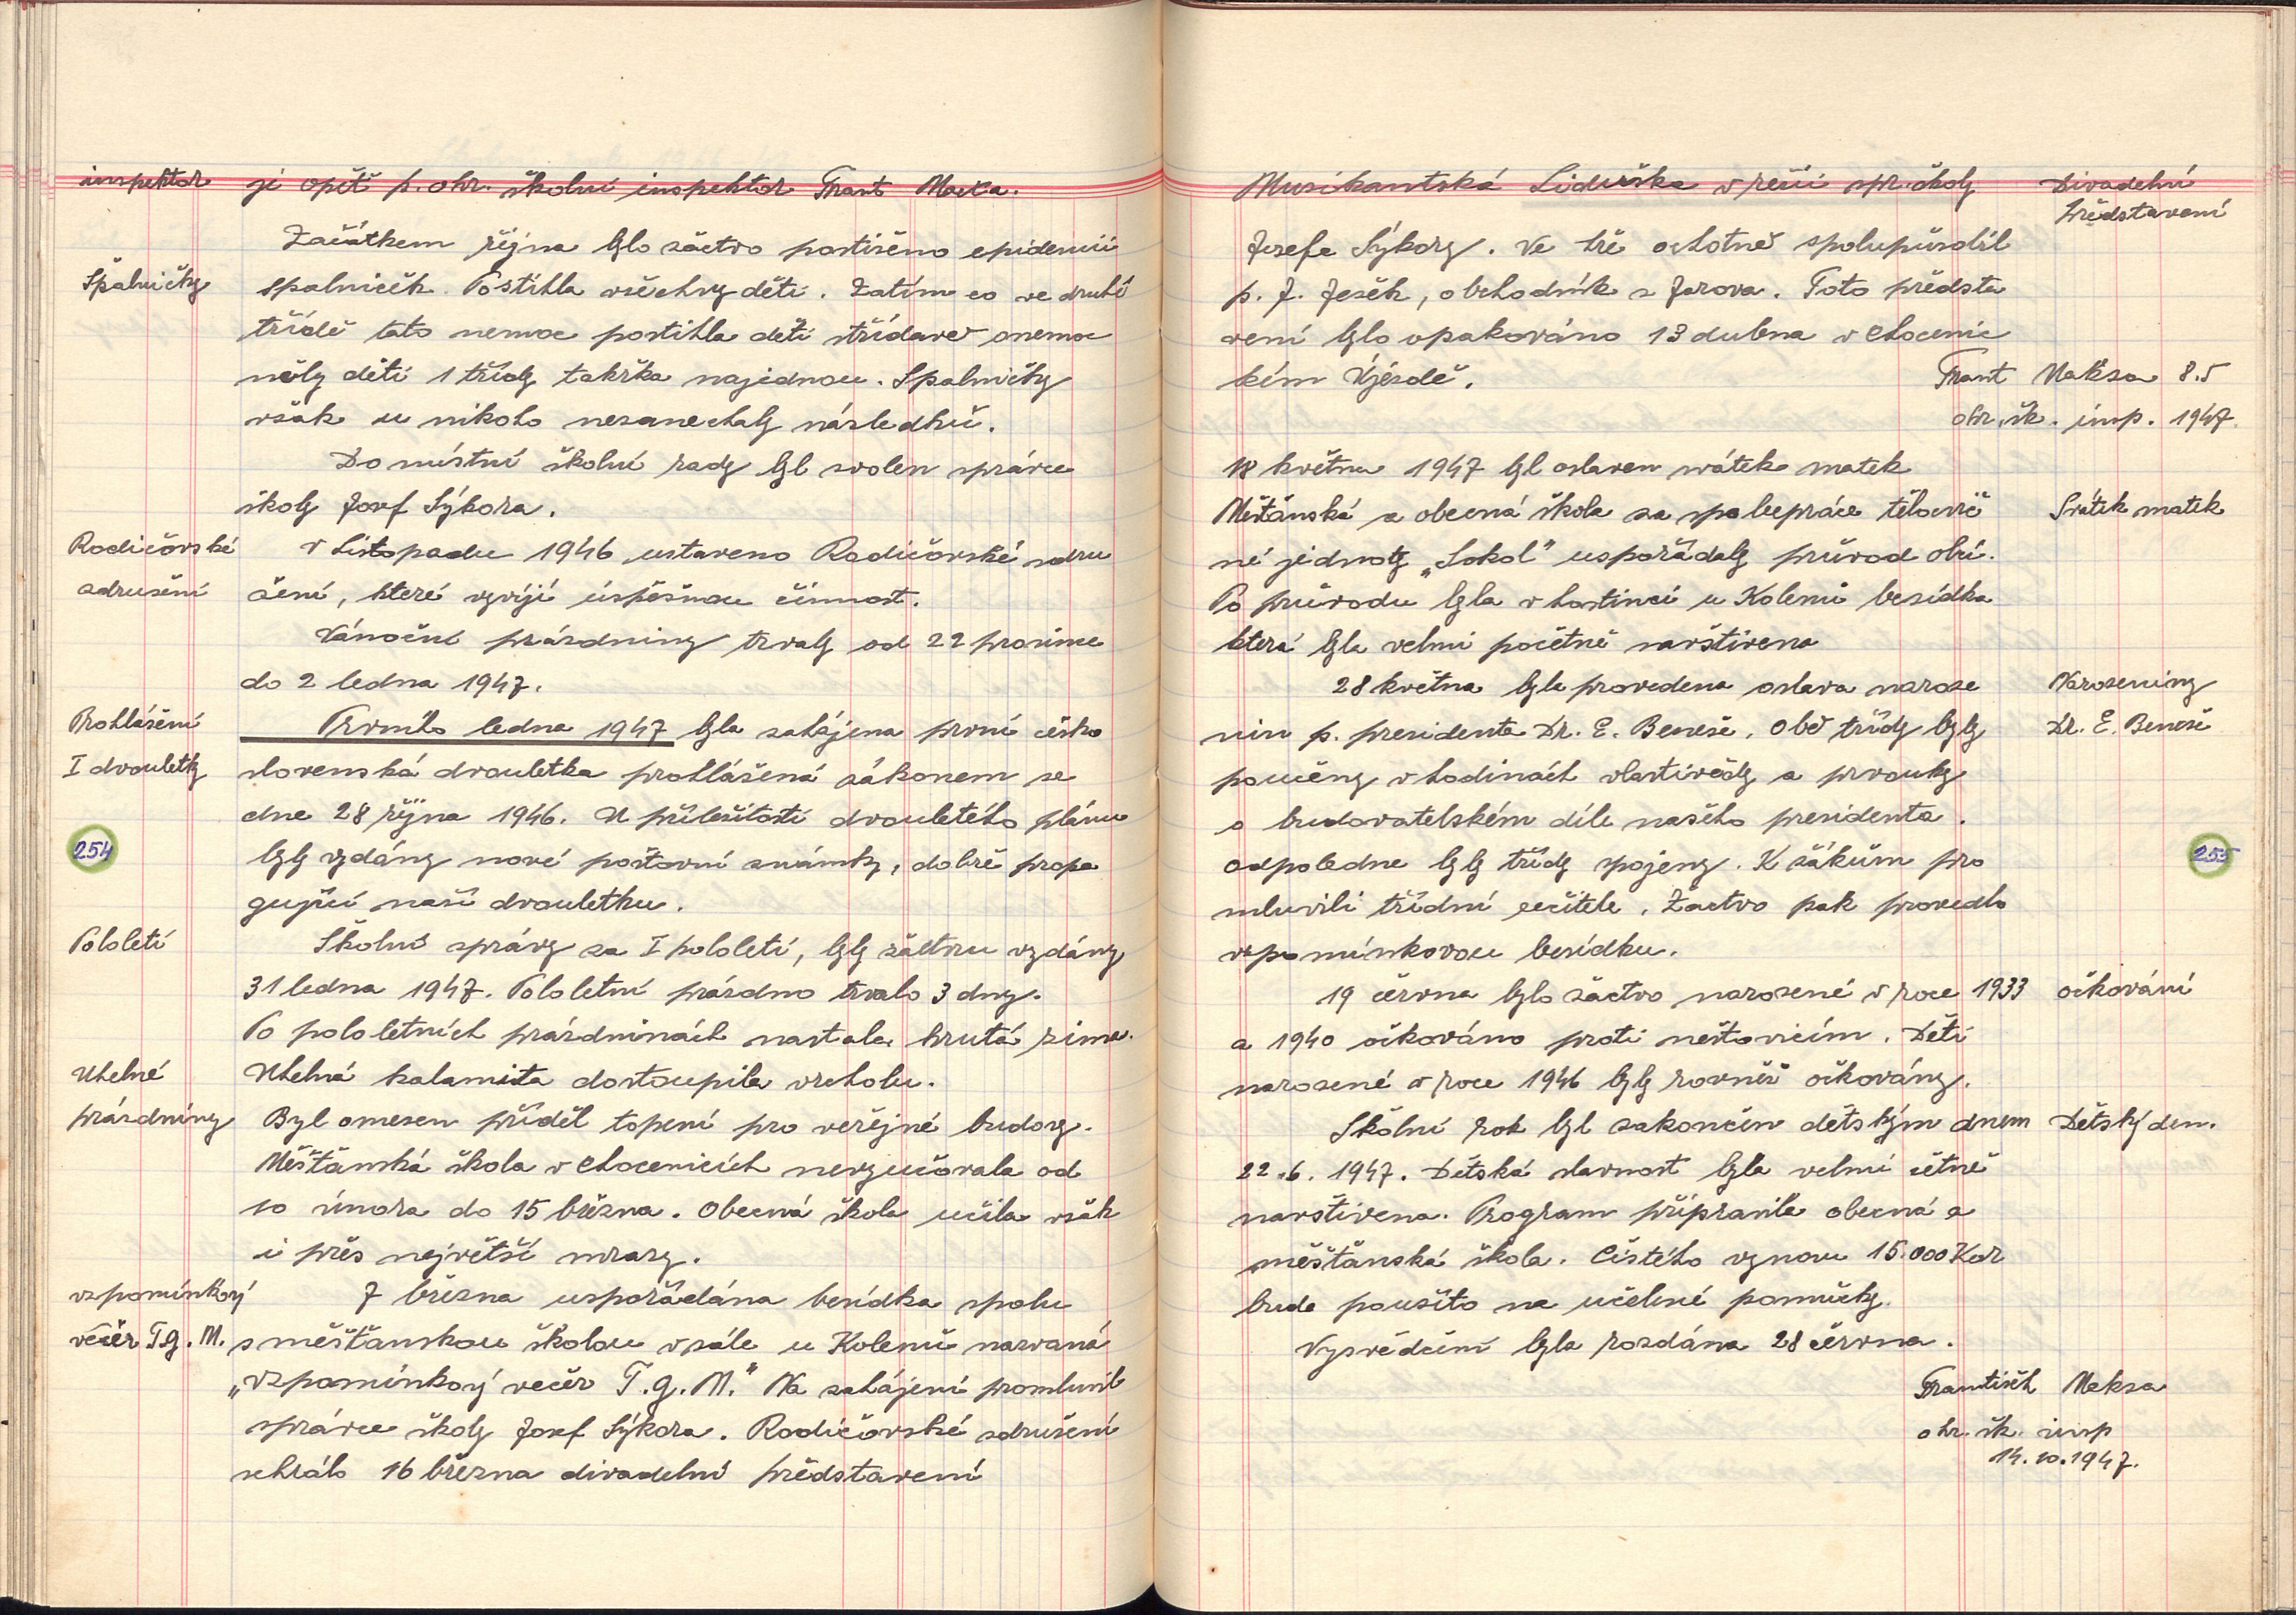 inspektor
je opět p. okr. školní inspektor Frant
Začátkem října bylo žactvo postiženo epidemií
Spalničky
spalniček. Postihla všechny děti. Zatím co ve druhé
třídě tato nemoc postihla děti střídavě onemoc
něly děti 1 třídy takřka najednou. Spalničky
však u nikoho nezanechaly následků.
Do místní školní rady byl zvolen správce
školy Josef Sýkora.
Rodičovské
sdružení
V Listopadu 1946 ustaveno Rodičovské sdru
žení, které vyvíjí úspěšnou činnost.
Vánoční prázdniny trvaly od 22 prosince
do 2 ledna 1947.
Prohlášení
I dvouletky
Prvního ledna 1947 byla zahájena první česko
slovenská dvouletka prohlášená zákonem ze
dne 28 října 1946. U příležitosti dvouletého plánu
254
byly vydány nové poštovní známky, dobře propa
gující naši dvouletku.
Pololetí
Školní zprávy za I pololetí, byly žactvu vydány
31 ledna 1947. Pololetní prázdno trvalo 3 dny.
Po pololetních prázdninách nastala krutá zima.
Uhelné
prázdniny
Uhelná kalamita dostoupila vrcholu.
Byl omezen příděl topení pro veřejné budovy.
Měšťanská škola v Chocenicích nevyučovala od
10 února do 15 března. Obecná škola učila však
i přes největší mrazy.
vzpomínkový
večer T.G.M.
7 března uspořádána besídka spolu
s měšťanskou školou v sále u Kolenů nazvaná
„Vzpomínkový večer T.G.M." Na zahájení promluvil
správce školy Josef Sýkora. Rodičovské sdružení
sehrálo 16 března divadelní představení
Musikantská Liduška v režii spr. školy
Divadelní
představení
Josefa Sýkory. Ve hře ochotně spolupůsobil
p. J. Ješek, obchodník z Jarova. Toto předsta
vení bylo opakováno 13 dubna v Chocenic
kém Újezdě.
Frant Maksa 8.5
okr. šk. insp. 1947.
18 května 1947 byl oslaven svátek matek
Svátek matek
Měšťanská a obecná škola za spolupráce tělocvič
né jednoty „Sokol" uspořádaly průvod obcí.
Po průvodu byla v hostinci u Kolenů besídka
která byla velmi početně navštívena
Narozeniny
Dr. E. Beneše
28 května byla provedena oslava naroze
nin p. presidenta Dr. E. Beneše. Obě třídy byly
poučeny v hodinách vlastivědy a prvouky
o budovatelském díle našeho presidenta.
255
odpoledne byly třídy spojeny. K žákům pro
mluvili třídní učitelé. Žactvo pak provedlo
vzpomínkovou besídku.
19 června bylo žactvo narozené v roce 1933
očkování
a 1940 očkováno proti neštovicím. Děti
narozené v roce 1946 byly rovněž očkovány.
Školní rok byl zakončen dětským dnem
Dětský den.
22.6. 1947. Dětská slavnost byla velmi četně
navštívena. Program připravila obecná a
měšťanská škola. Čistého výnosu 15.000 Kčs
bude použito na učební pomůcky.
Vysvědčení byla rozdána 28 června.
František Maksa
okr. šk. insp
14.10.1947.